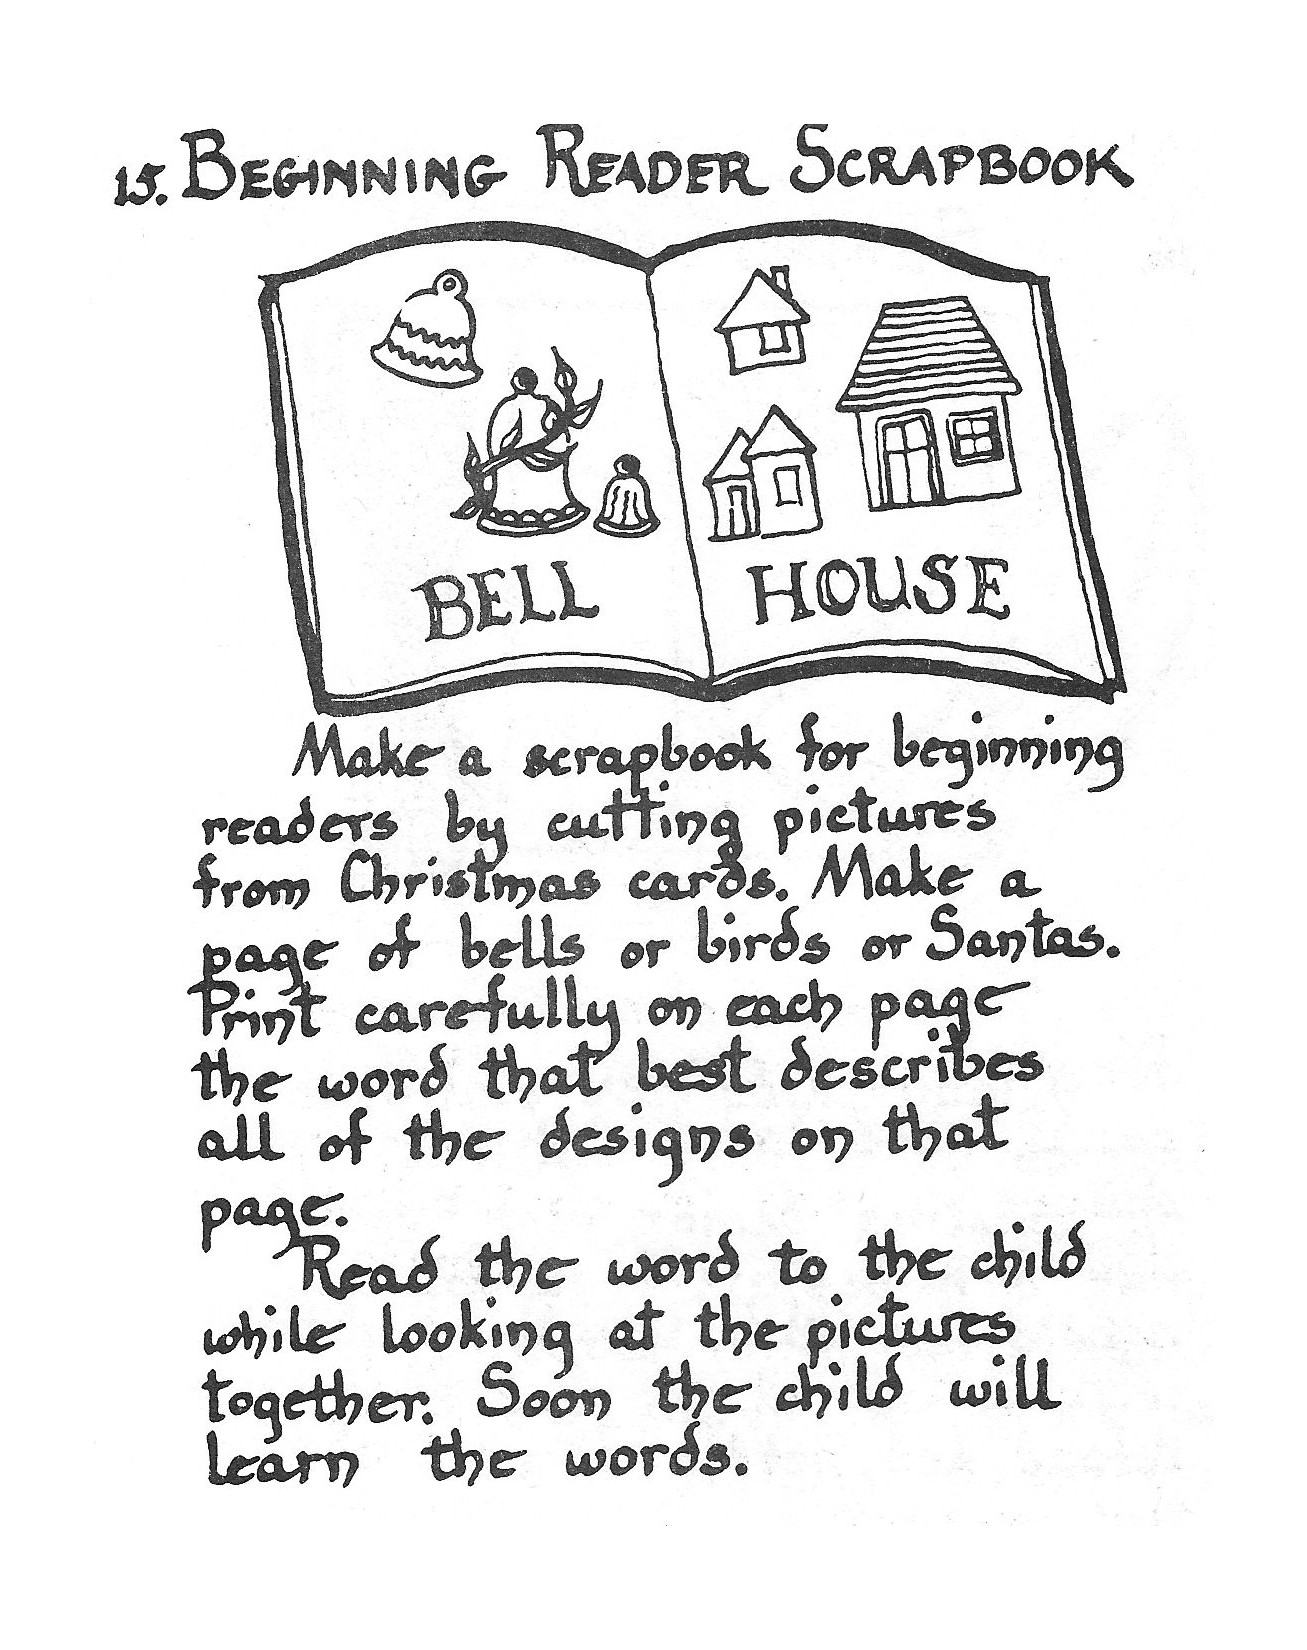 15. BEGINNING READER SCRAPBOOK
BELL
HOUSE
Make a scrapbook for beginning
readers by cutting pictures
from Christmas cards. Make a
page of bells or birds or Santas.
Print carefully on each page
the word that best describes
all of the designs on that
page.
Read the word to the child
while looking at the pictures
together. Soon the child will
learn the words.